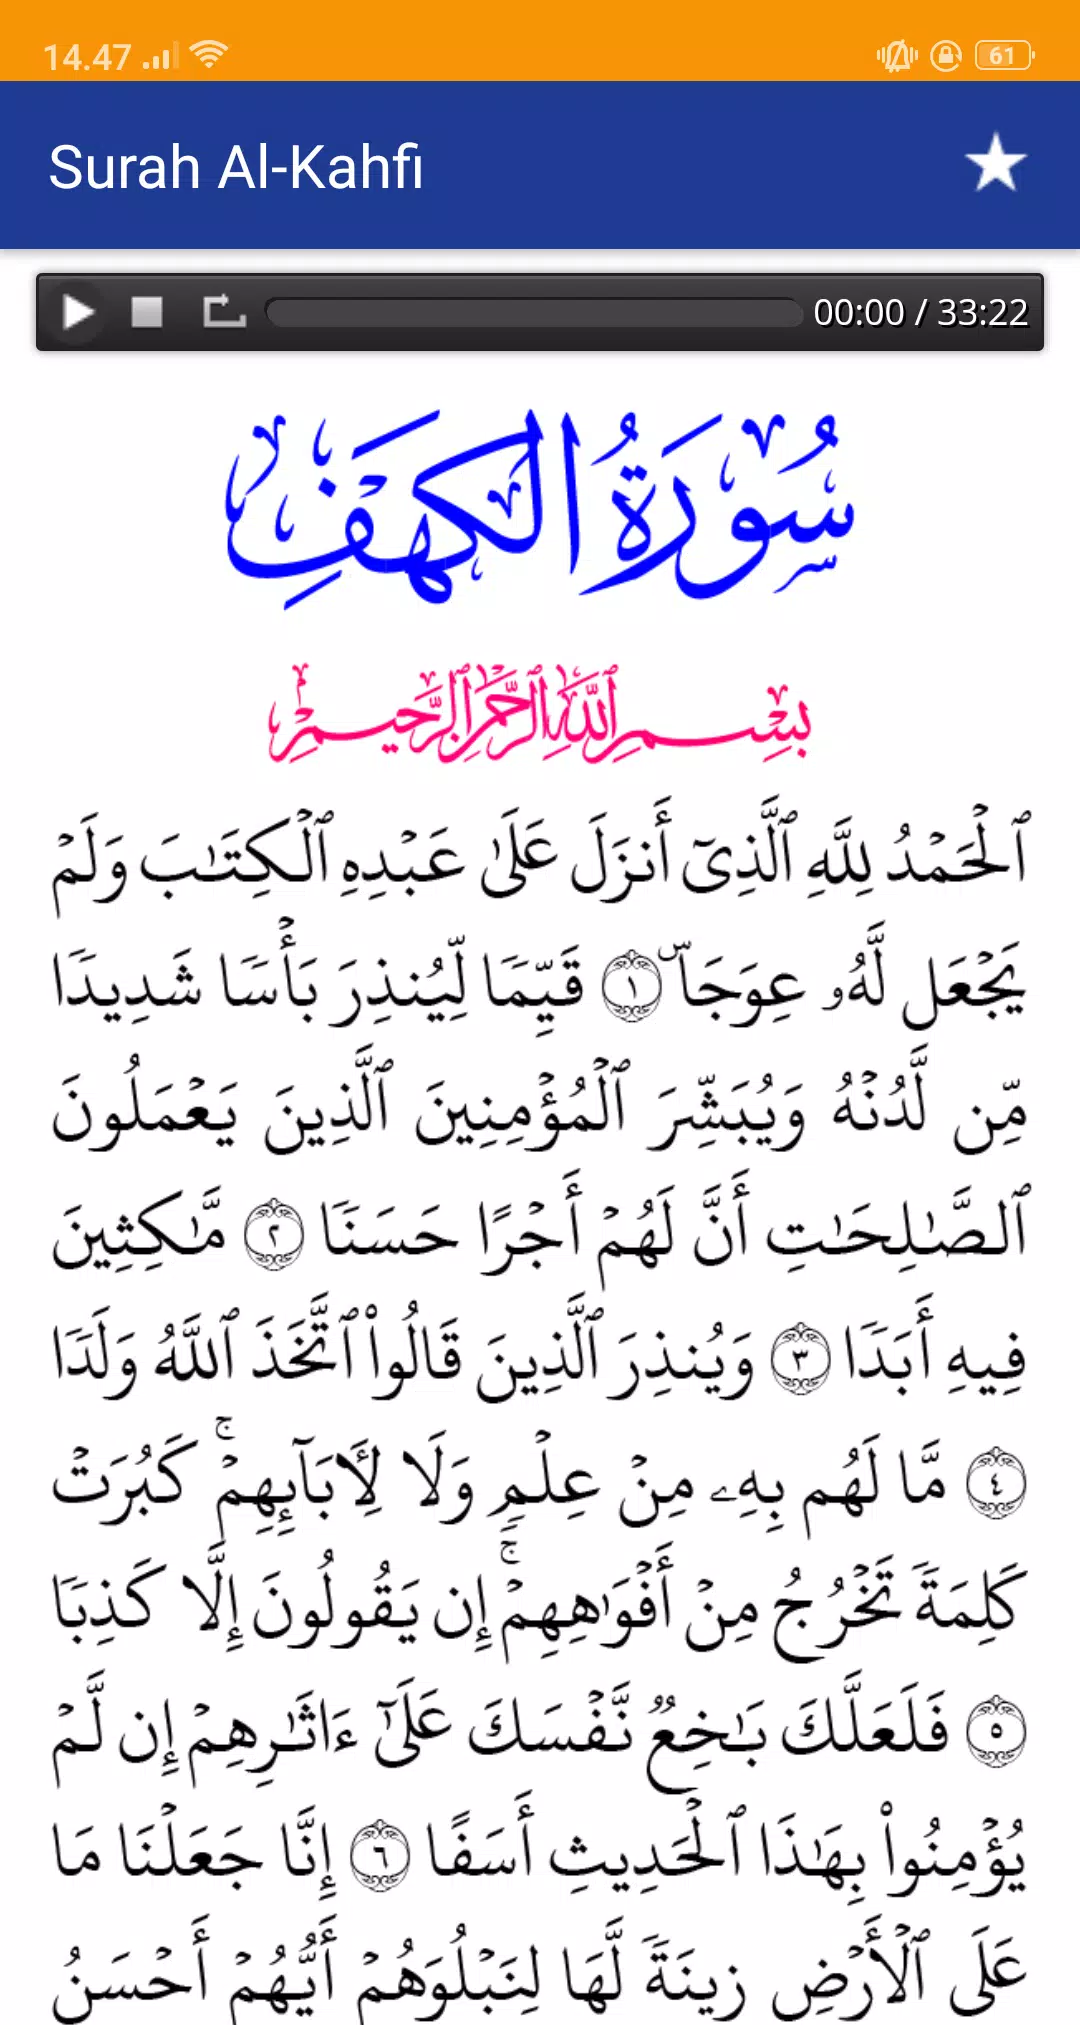 14.47
61
Surah Al-Kahfi
00:00 / 33:22
سُورَةُ الكَهفِ
بِسۡمِ ٱللَّهِ ٱلرَّحۡمَٰنِ ٱلرَّحِيمِ
ٱلۡحَمۡدُ لِلَّهِ ٱلَّذِيٓ أَنزَلَ عَلَىٰ عَبۡدِهِ ٱلۡكِتَٰبَ وَلَمۡ
يَجۡعَل لَّهُۥ عِوَجَاۜ ١ قَيِّمٗا لِّيُنذِرَ بَأۡسٗا شَدِيدٗا
مِّن لَّدُنۡهُ وَيُبَشِّرَ ٱلۡمُؤۡمِنِينَ ٱلَّذِينَ يَعۡمَلُونَ
ٱلصَّٰلِحَٰتِ أَنَّ لَهُمۡ أَجۡرًا حَسَنٗا ٢ مَّٰكِثِينَ
فِيهِ أَبَدٗا ٣ وَيُنذِرَ ٱلَّذِينَ قَالُواْ ٱتَّخَذَ ٱللَّهُ وَلَدٗا
٤ مَّا لَهُم بِهِۦ مِنۡ عِلۡمٖ وَلَا لِأٓبَآئِهِمۡۚ كَبُرَتۡ
كَلِمَةٗ تَخۡرُجُ مِنۡ أَفۡوَٰهِهِمۡۚ إِن يَقُولُونَ إِلَّا كَذِبٗا
٥ فَلَعَلَّكَ بَٰخِعٞ نَّفۡسَكَ عَلَىٰٓ ءَاثَٰرِهِمۡ إِن لَّمۡ
يُؤۡمِنُواْ بِهَٰذَا ٱلۡحَدِيثِ أَسَفًا ٦ إِنَّا جَعَلۡنَا مَا
عَلَى ٱلۡأَرۡضِ زِينَةٗ لَّهَا لِنَبۡلُوَهُمۡ أَيُّهُمۡ أَحۡسَنُ